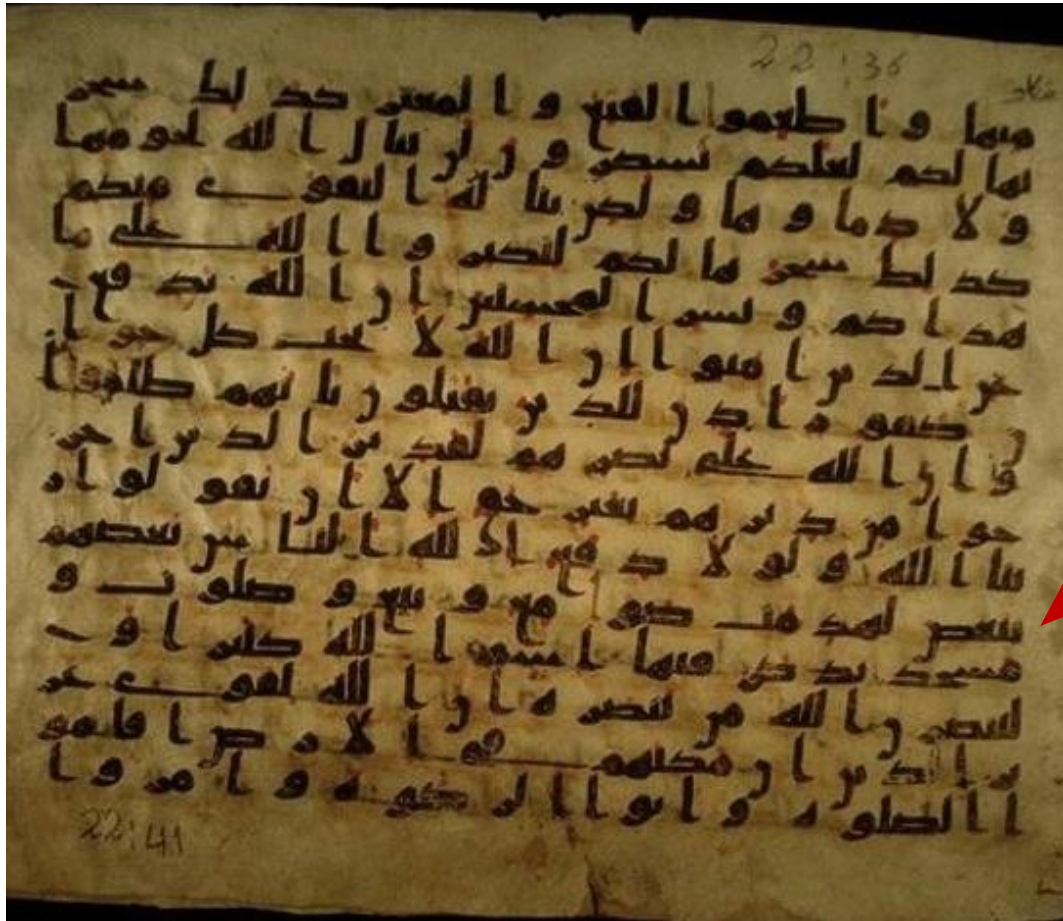 22:36
منها و اطعموا القنع و المعتر كذلك سخر
نها لكم لعلكم تشكرون لن ينال الله لحومها
ولا دماوها ولكن يناله التقوى منكم
كذلك سخرها لكم لتكبروا الله على ما
هداكم وبشر المحسنين ان الله يدفع
عن الذين امنوا ان الله لا يحب كل خوا
ن كفور اذن للذين يقتلون بانهم ظلموا
و ان الله على نصرهم لقدير الذين اخر
جوا من ديرهم بغير حق الا ان يقولوا ر
بنا الله ولولا دفع الله الناس بعضهم
ببعض لهدمت صومع وبيع وصلوت و
مسجد يذكر فيها اسم الله كثيرا و
لينصرن الله من ينصره ان الله لقوى عز
يز الذين ان مكنهم في الارض اقامو
ا الصلوة واتوا الزكوة وامروا
22:41